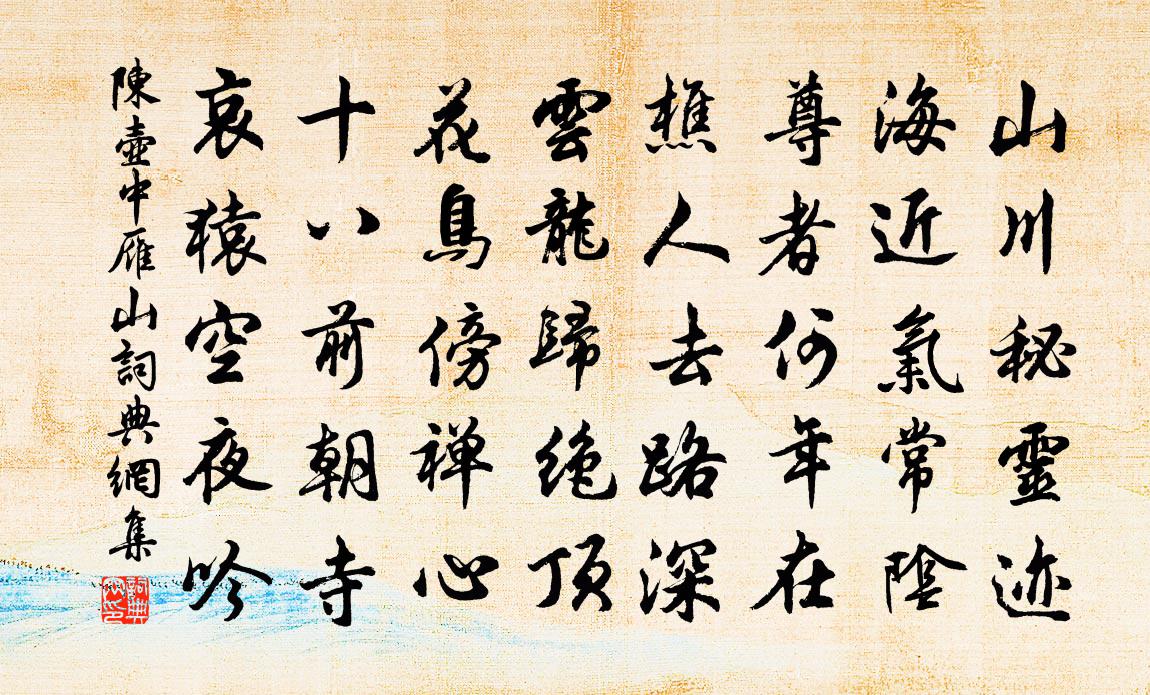 山川秘靈迹
海近氣常陰
尊者何年在
樵人去路深
雲龍歸絶頂
花鳥傍禅心
十八前朝寺
哀猿空夜吟
陳壺中雁山詞典網集